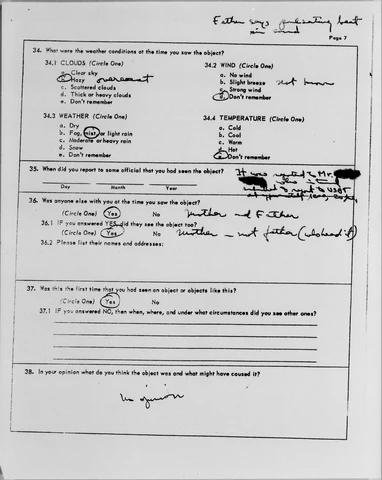 Father says
in wind
Page 7
34. What were the weather conditions at the time you saw the object?
34.1 CLOUDS (Circle One)
a. Clear sky
b. Hazy overcast
c. Scattered clouds
d. Thick or heavy clouds
e. Don't remember
34.2 WIND (Circle One)
a. No wind
b. Slight breeze not known
c. Strong wind
d. Don't remember
34.3 WEATHER (Circle One)
a. Dry
b. Fog, mist or light rain
c. Moderate or heavy rain
d. Snow
e. Don't remember
34.4 TEMPERATURE (Circle One)
a. Cold
b. Cool
c. Warm
d. Hot
e. Don't remember
35. When did you report to some official that you had seen the object?
It was reported to Mr.
Day Month Year
36. Was anyone else with you at the time you saw the object?
(Circle One) Yes No Mother and Father
36.1 IF you answered YES, did they see the object too?
(Circle One) Yes No Mother - not father
36.2 Please list their names and addresses:
37. Was this the first time that you had seen an object or objects like this?
(Circle One) Yes No
37.1 IF you answered NO, then when, where, and under what circumstances did you see other ones?
38. In your opinion what do you think the object was and what might have caused it?
no opinion